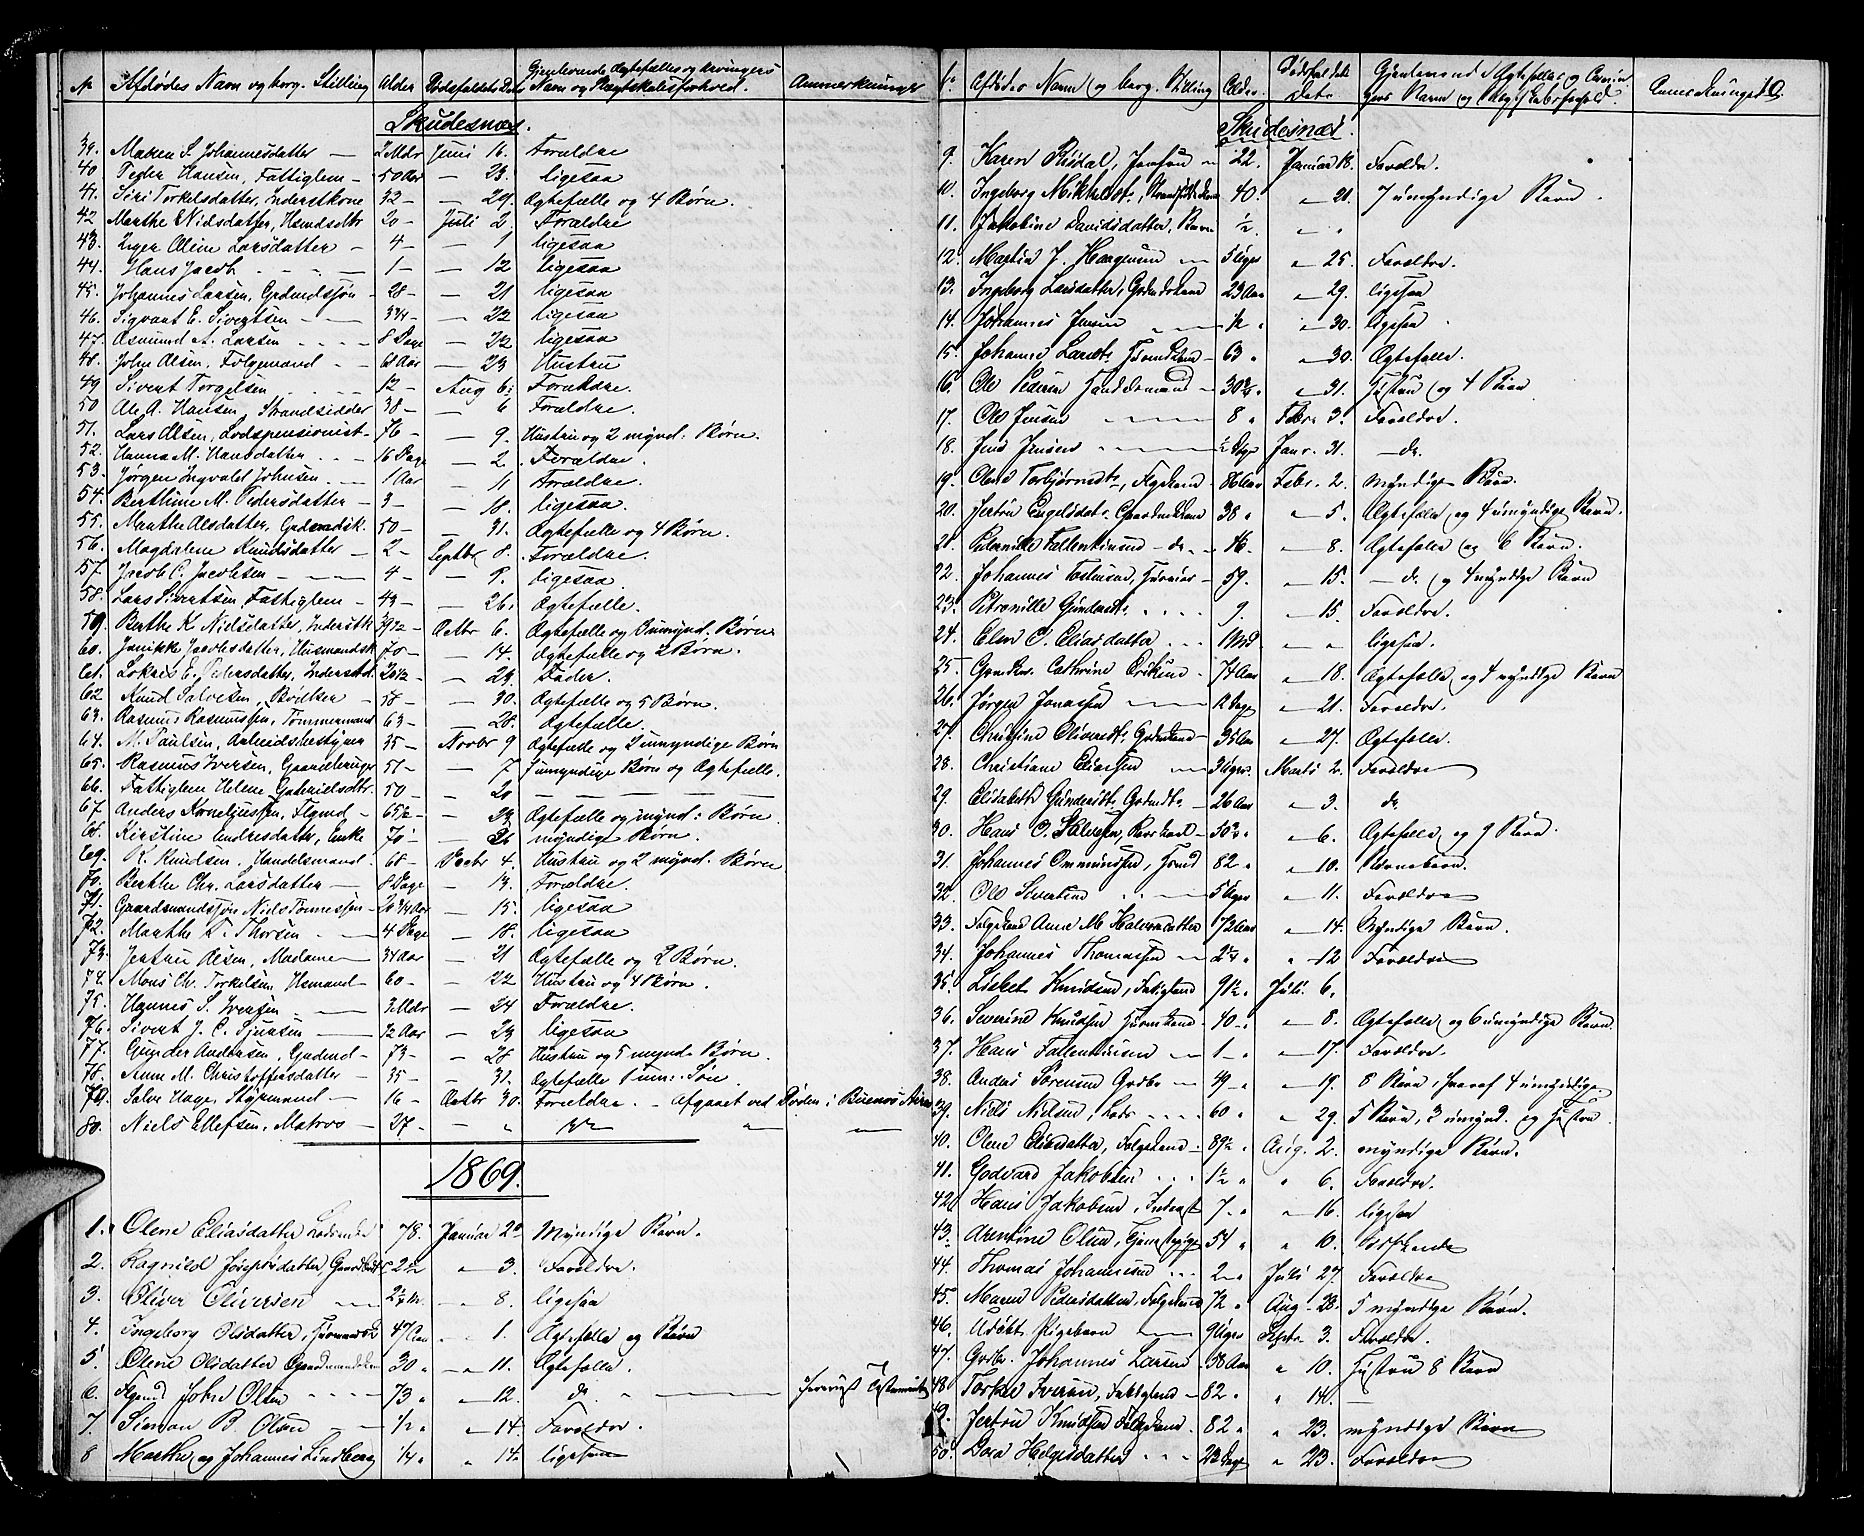 № Afdödes Navn og borg. Stilling Alder Dödsfaldets Dat Gjenlevende Ægtefælles og Arvingers Navn og Slægtskabsforhold. Anmerkninger
Skudesnæs.
39. Maren S. Johannesdatter — 2 Mdr Juni 16. Forældre
40. Peder Hansen, Fattiglem — 50 Aar — 23. ligesaa
41. Siri Torkelsdatter, Inderstkone 32 — — 29. Ægtefælle og 4 Børn.
42 Marthe Nielsdatter, Hsmdsdtr 20 — Juli 2. Forældre
43. Inger Oline Larsdatter — 4 — — 1 ligesaa
44. Hans Jacob 1 — — 12 ligesaa
45. Johannes Larsen, Grdmdssøn 28 — — 21 ligesaa
46. Sigvart E. Sivertsen 3/4 — — 22 ligesaa
47. Asmund A. Larsen 8 Dage — 22 ligesaa
48. John Olsen, Folgemand 61 Aar — 23 Hustru
49 Sivert Torgelsen 12 — Aug 6. Forældre.
50 Ole A. Hansen Strandsidder 38 — — 6 Forældre.
51. Lars Olsen, Lodspensionist 76 — — 9. Hustru og 2 mynd. Børn.
52. Hanna M. Hansdatter 16 Dage — 2. Forældre.
53. Jørgen Ingvald Johnsen 1 Aar — 11 Forældre.
54. Berthine M. Pedersdatter 3 — — 18. ligesaa.
55. Marthe Olsdatter, Grdmdsk. 50 — — 31. Ægtefælle og 4 Børn.
56. Magdalene Knudsdatter 2 — Septbr 8. Forældre.
57. Jacob C. Jacobsen 4 — — 9. ligesaa.
58. Lars Sivertsen Fattiglem 43 — — 26. Ægtefælle.
59. Berthe K. Nielsdatter, Inderstk Octbr 6. Ægtefælle og 3 umynd. Børn
60. Janikke Jacobsdatter, Husmandsk 70 — — 14. Ægtefælle og 2 Børn.
61. E. Pedersdatter, 20 1/2 — — 29. Fader.
62 Knud Salvesen, Bødker 58 — — 30. Ægtefælle og 5 Børn.
63. Rasmus Rasmussen, Tømmermand 63 — — 28. Ægtefælle.
64. M. Paulsen, Arbeidsbestyrer 35 — Novbr 9 Ægtefælle og 2 umyndige Børn
65. Rasmus Iversen, Gaardbruger 51 — — 7 umyndige Børn og Ægtefælle.
66. Fattiglem Helene Gabrielsdtr. 50 — — 20 — — —
67. Anders Korneliussen, Flgmd 65 1/2 — — 23 Ægtefælle og mynd: Børn.
68. Kirstine Endresdatter, Enke 70 — — 26 myndige Børn.
69. K. Knudsen. Handelsmand 68 — Decbr 4. Hustru og 2 mynd. Børn
70. Berthe Chr. Larsdatter 8 Dage — 13. Forældre.
71. Gaardmandssøn Niels Tønnessen 20 3/4 Aar — 15. ligesaa
72. Marthe T. Thorsen 4 Dage — 18. ligesaa
73. Jertru Olsen, Madame 34 Aar — 21 Ægtefælle og 2 Børn.
74. Mons Chr. Torkelsen Hsmand 60 — — 22 Hustru og 4 Børn.
75. Hannes S. Iversen 3 Mdr — 24 Forældre.
76. Sivert J. C. 1/2 Aar — 23 ligesaa
77. Gunder Andersen, Grdmd 73 — — 28 Hustru og 5 mynd. Børn.
78. Anne M. Christoffersdatter 35 — — 31. Ægtefælle 1 um: Søn.
79. Salve Hager Styrmand 16 — Octbr 30. Forældre. — Afgaaet ved Døden i Buenos Aires
80. Niels Ellefsen, Matros 27 — — " "
1869.
1. Olene Eliasdatter 78. Januar 20 Myndige Børn.
2. Ragnild Josefsdatter, 2 1/2 " 3. Forældre.
3. Oliver Oliversen " 8. ligesaa
4. Ingeborg Olsdatter, 47 Aar " 1. Ægtefælle og Børn
5. Olene Olsdatter Gaardmandskone 30 " " 11. Ægtefælle.
6. Flgmd John Olsen 73 " " 12. do.
7. Simon B. Olsen 1/2 " " 14. Forældre.
8 Marthe og Johannes Lindberg 1/4 " " 14. ligesaa
Afdødes Navn og borg. Stilling Alder. Dødsfaldets Date Anmerkninger.
Skudesnæs.
9. Karen Risdal, Jensen 22. Januar 18. Forældre.
10. Ingeborg 40. " 21. 7 umyndige Børn.
11. Jakobine Davidsdatter, Barn 1/2. " "
12. Martin J. 5 Uger " 25. Forældre.
13. Ingeborg Larsdatter, 23 Aar " 29. ligesaa
14. Johannes Jensen 1/2 " " 30. ligesaa
15. Johanne Larsdtr 63 " " 30. Ægtefælle.
16. Ole Pedersen Handelsmand " 31. Hustru og 4 Børn
17. Ole Jensen 8 " Febr. 3. Forældre.
18. Jens Jensen Janr. 31. — do.
19. Olene Torbjørnsdtr, 86 Aar Febr. 2. Myndige Børn.
20. Jertru Engelsdatr. 38 " " 5. Ægtefælle og 4 umyndige Børn.
21. Petronille — do. — " 8. Ægtefælle og 6 Børn.
22. Johannes 59. " 15. — do. og 4 myndige Børn
23. Petronille Gundersdtr. 9. — 15. Forældre.
24. Elen C. Eliasdatter 1 Md " " ligesaa.
25 Cathrine Eriksen 74 Aar " 18. Ægtefælle og 4 myndige Børn
26. Jørgen Jonassen 12 Dage " 21. Forældre.
27. Christine 35 Aar " 27. Ægtefælle.
28. Christiane Eliassen 3 Uger. Marts 2. Forældre
29. Elisabeth Gundersdtr. 26 Aar " 3. do.
30. Hans O. " 6. Ægtefælle og 9 Børn.
31. Johannes Ommundsen, 82 " " 10. Børnebørn.
32. Ole Sivertsen 5 Uger " 11. Forældre
33. Folgekone Anne M. Halvorsdatter 72 Aar " 14. Myndige Børn.
34. Johannes Thomassen " 12 Forældre
35. Lisbet Knudsen, Fattiglem 91 1/2 " Juli 6.
36. Severine Knudsen 40 " " 8. Ægtefælle og 6 umyndige Børn.
37. Hans 1 — " " 17. Forældre.
38. Anders Sørensen Grdbr. 49 " " 19. 8 Børn, hvoraf 4 umyndige
39. Niels Nielsen, Lods 60 " " 29. 5 Børn, 3 umynd. og Hustru
40. Olene Eliasdatter, Folgekone 89 1/2 " Aug. 2. myndige Børn.
41. Godvard Jakobsen 1 1/2 " " 6. Forældre.
42. Hans Jakobsen, 7 " " 16. ligesaa
43. Olsen, 54 " " 10. Søskende
44. Thomas Johannesen 2 " Juli 27. Forældre
45. Maren Pedersdatter, Folgekone 72 " Aug. 28. 5 myndige Børn.
46. Udøbt Pigebarn 9 Uger Septr. 3. Forældre.
47. Grdbr. Johannes Larsen 38 Aar " 10. Hustru 8 Børn
48 Iversen, Fattiglem 82 " " 14. —
49. Jertru Knudsen Folgekone 82 " " 23. myndige Børn
50. Helgesdatter " 23. Forældre